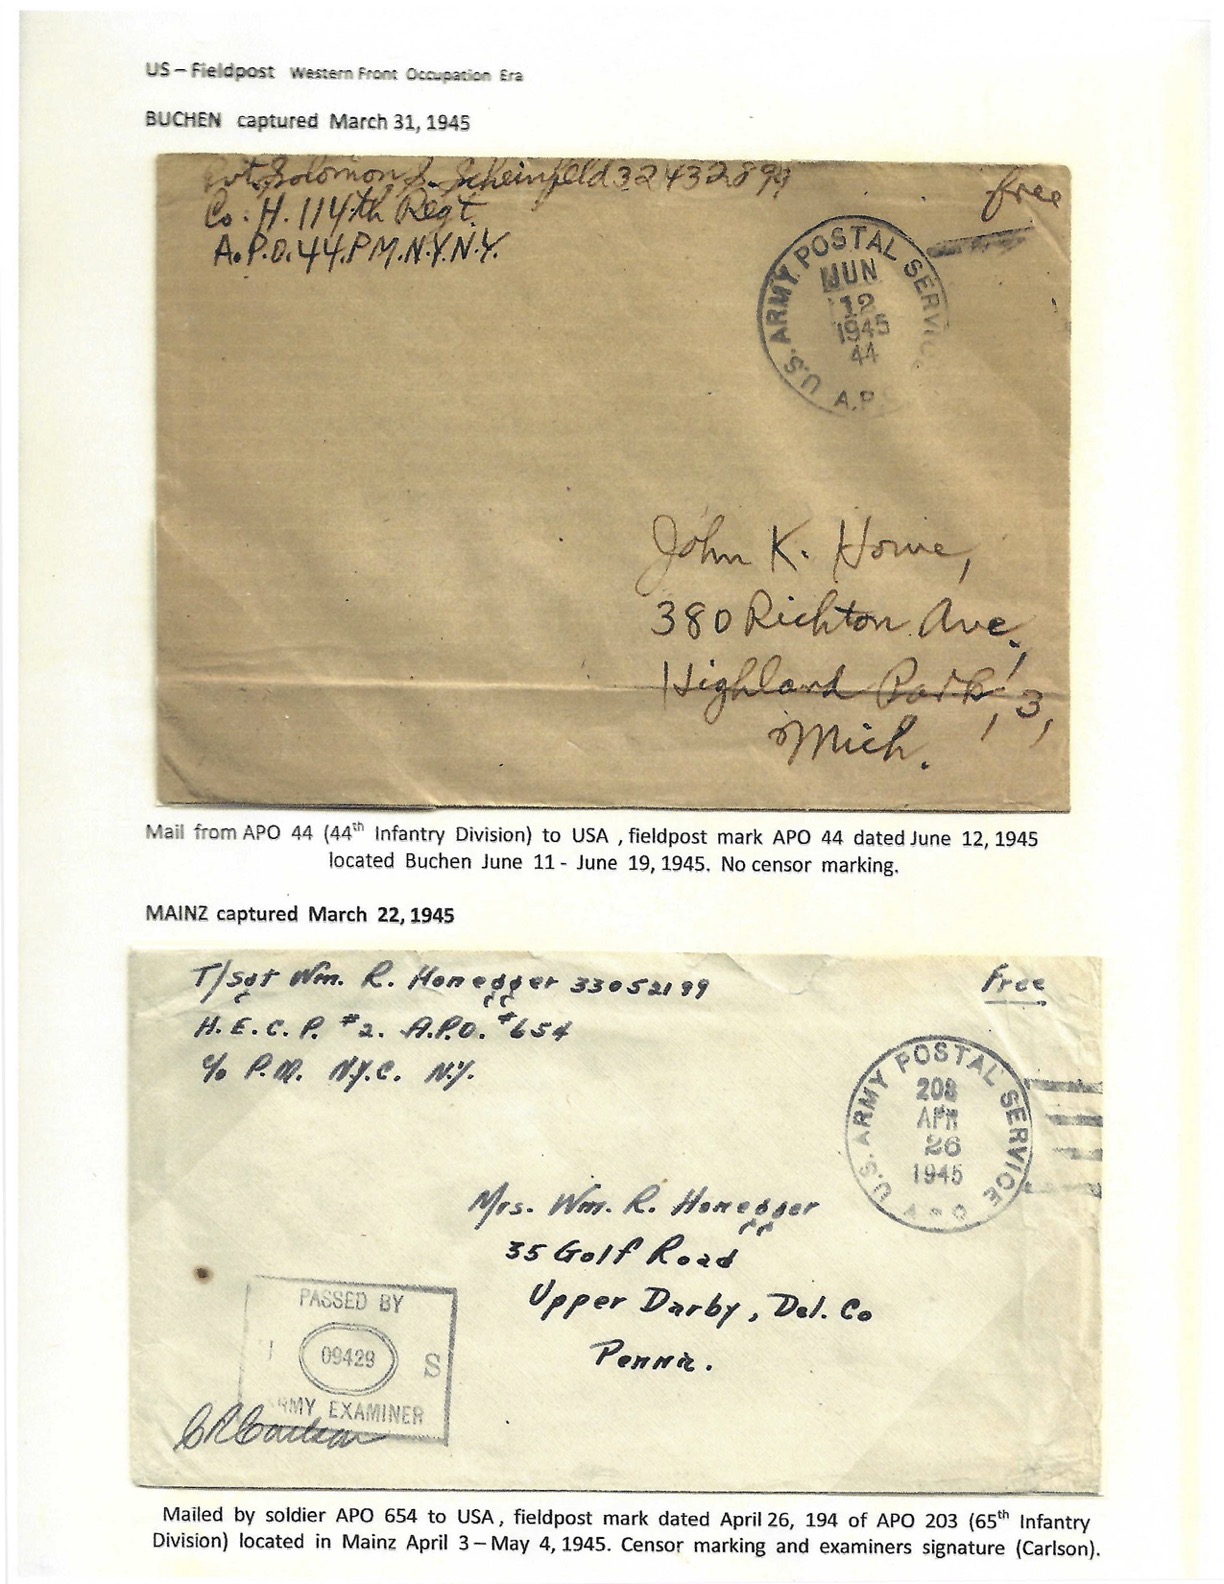 US – Fieldpost Western Front Occupation Era
BUCHEN captured March 31, 1945
Pvt. Solomon S. Scheinfeld 32432899
Co. H. 114th Regt.
A.P.O. 44. P M. N.Y. N.Y.
free
U.S. ARMY POSTAL SERVICE
JUN
12
1945
44
A.P.
John K. Howe,
380 Richton Ave.,
Highland Park, 3,
Mich.
Mail from APO 44 (44th Infantry Division) to USA , fieldpost mark APO 44 dated June 12, 1945
located Buchen June 11 - June 19, 1945. No censor marking.
MAINZ captured March 22, 1945
T/Sgt Wm. R. Honegger 33052199
H. E. C. P. #2. A.P.O. #654
c/o P.M. N.Y.C. N.Y.
Free
U.S. ARMY POSTAL SERVICE
208
APR
26
1945
A P O
Mrs. Wm. R. Honegger
35 Golf Road
Upper Darby, Del. Co
Penna.
PASSED BY
09429
S
ARMY EXAMINER
CRCarlson
Mailed by soldier APO 654 to USA , fieldpost mark dated April 26, 194 of APO 203 (65th Infantry
Division) located in Mainz April 3 – May 4, 1945. Censor marking and examiners signature (Carlson).